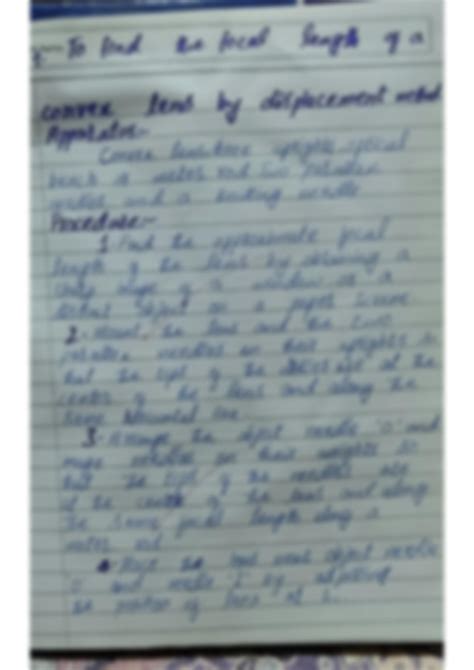 To find the focal length of a
convex lens by displacement method
Apparatus:-
Convex lens three uprights optical
bench a meter rod two
needles and a knitting needle
Procedure:-
1. Find the approximate focal
length of the lens by obtaining a
sharp image of a window as a
distant object on a paper screen
2. Mount the lens and the two
needles on their uprights so
that the tips of the needles are at the
center of the lens and along the
same horizontal line.
3. Arrange the object needle 'O' and
image needles on their uprights so
that the tips of the needles are
at the center of the lens and along
the same focal length along a
meter rod
4. Place the object needle
O and needle I by adjusting
the position of lens at L.